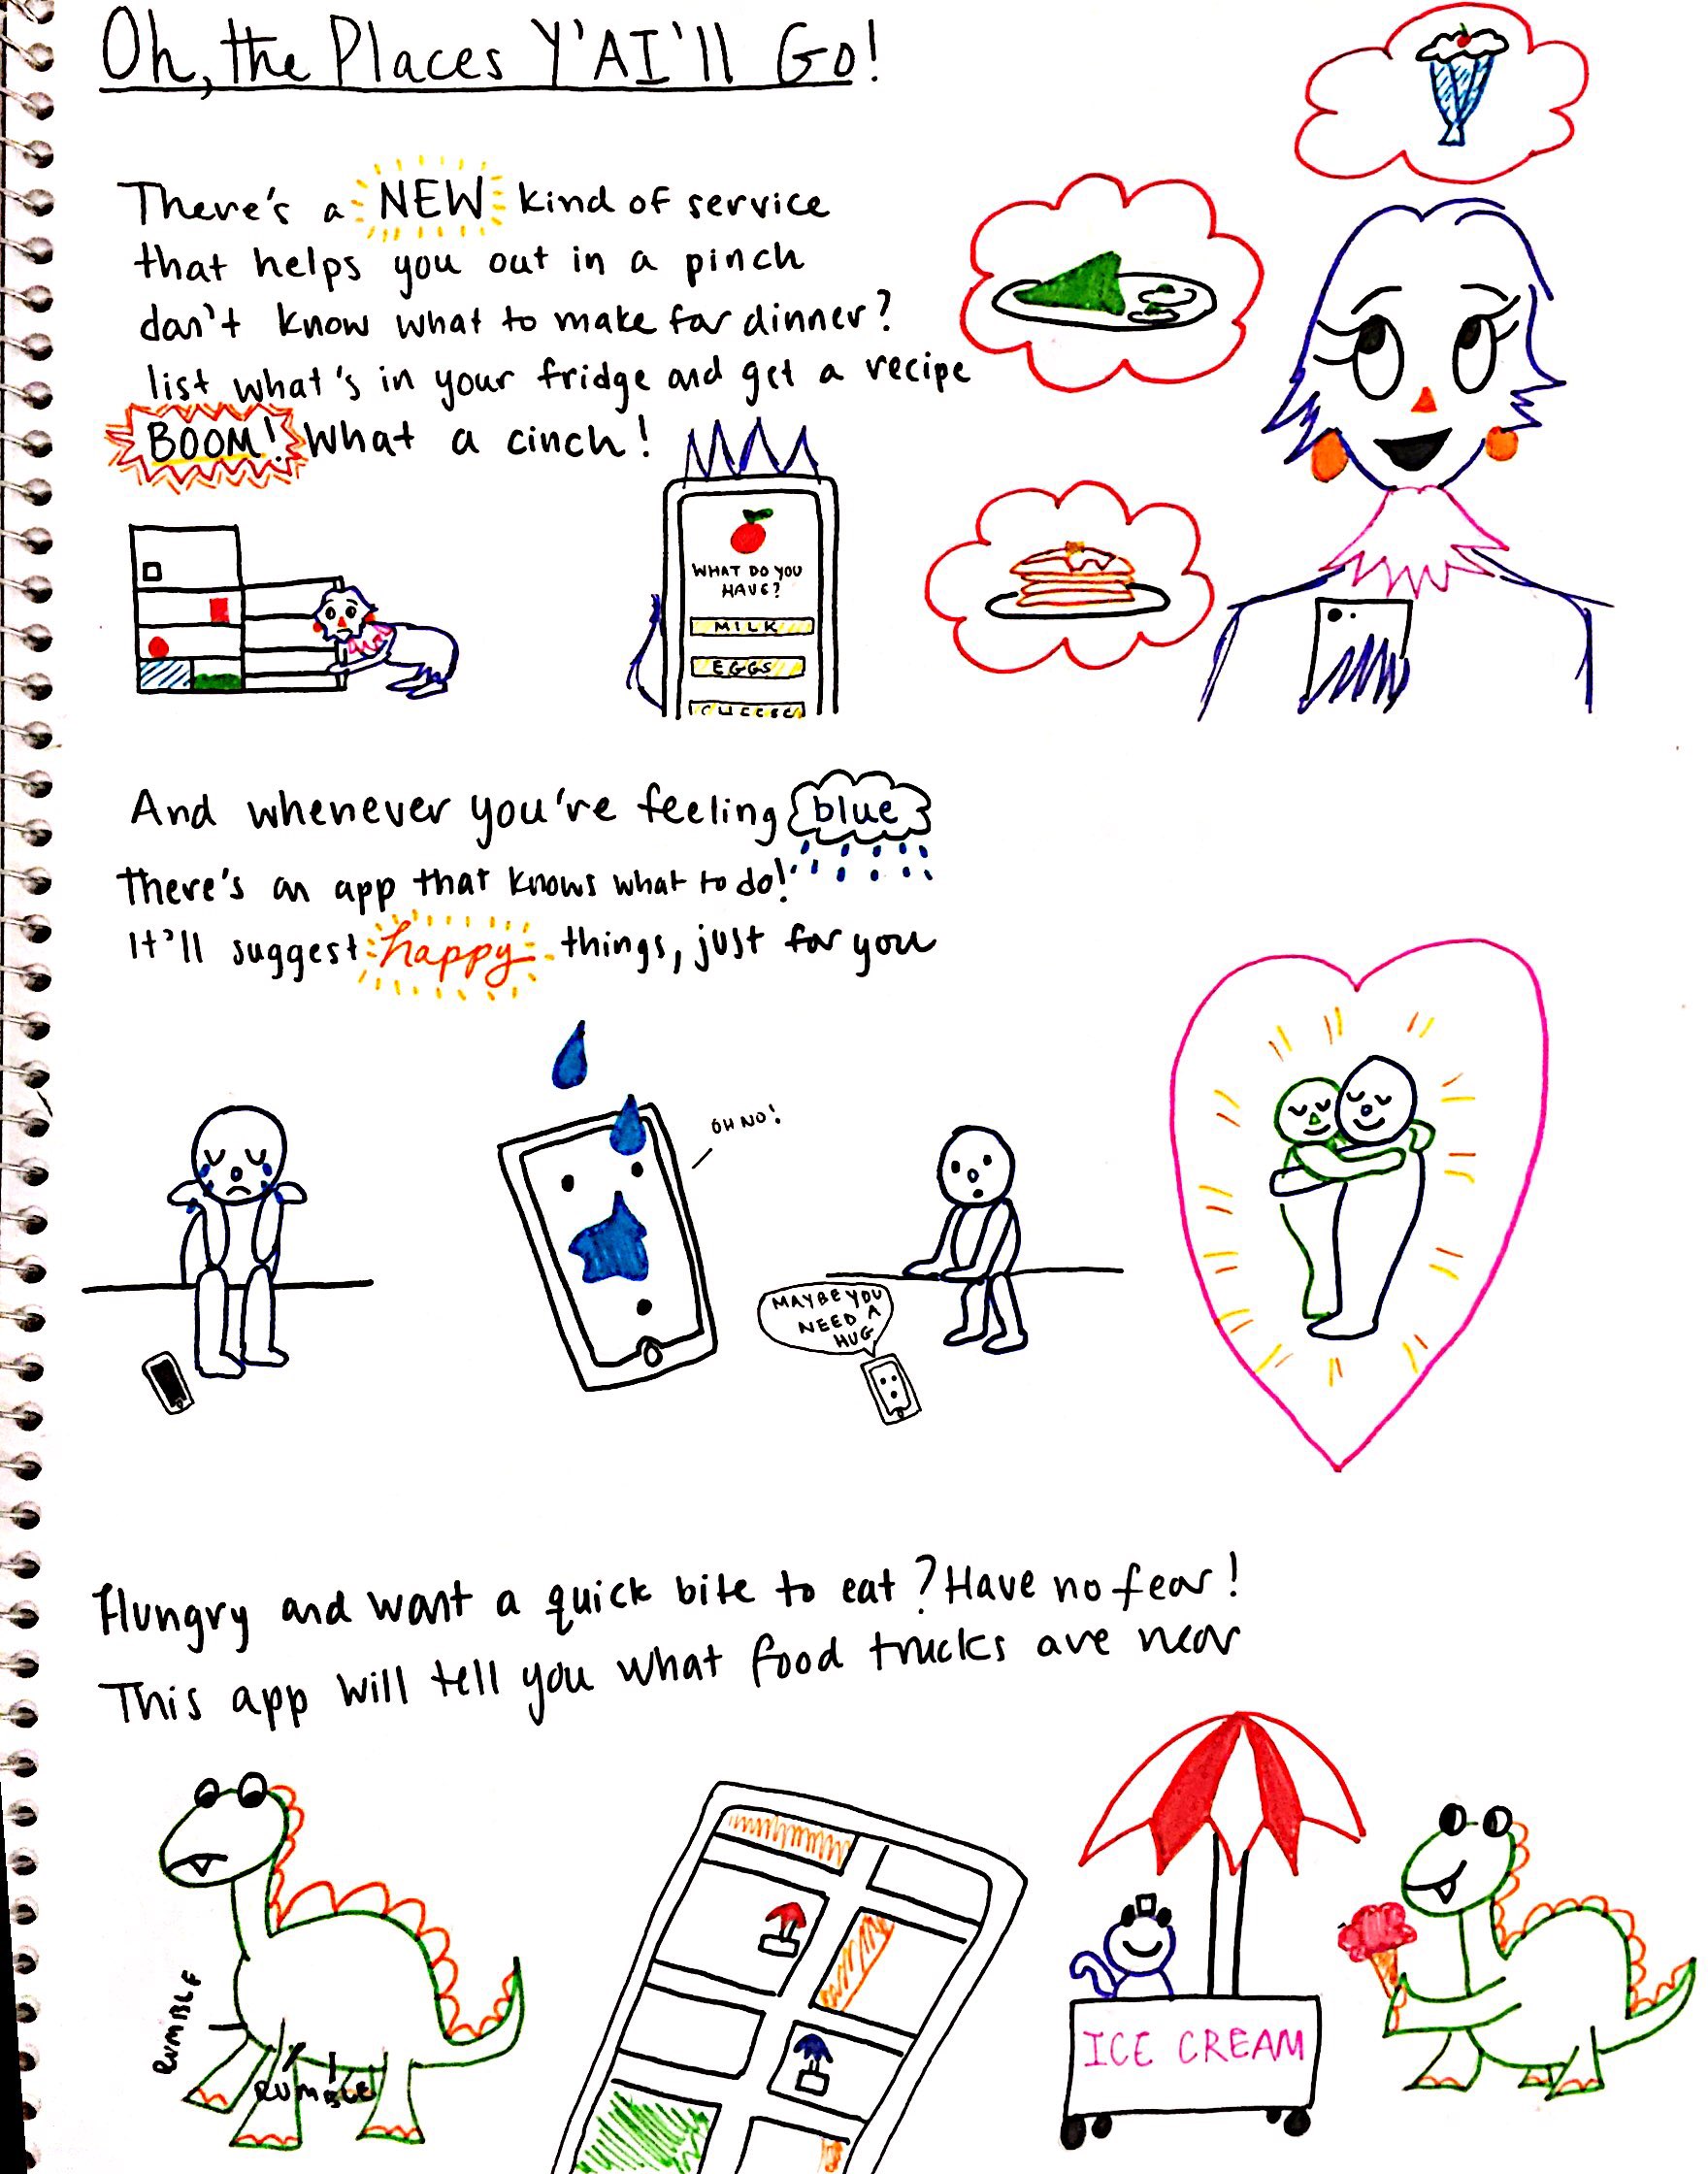 Oh, the Places Y'AI'll Go!
There's a NEW kind of service
that helps you out in a pinch
don't know what to make for dinner?
list what's in your fridge and get a recipe
BOOM! What a cinch!
WHAT DO YOU
HAVE?
MILK
EGGS
And whenever you're feeling blue
There's an app that knows what to do!
It'll suggest happy things, just for you
OH NO!
MAYBE YOU
NEED A
HUG
Hungry and want a quick bite to eat? Have no fear!
This app will tell you what food trucks are near
RUMBLE
RUMBLE
ICE CREAM